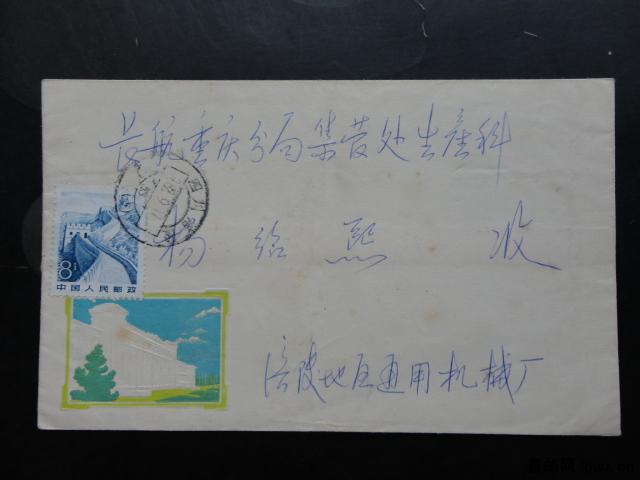 长航重庆分局集营处生产科
杨绍熙 收
8分
中国人民邮政
涪陵地区通用机械厂